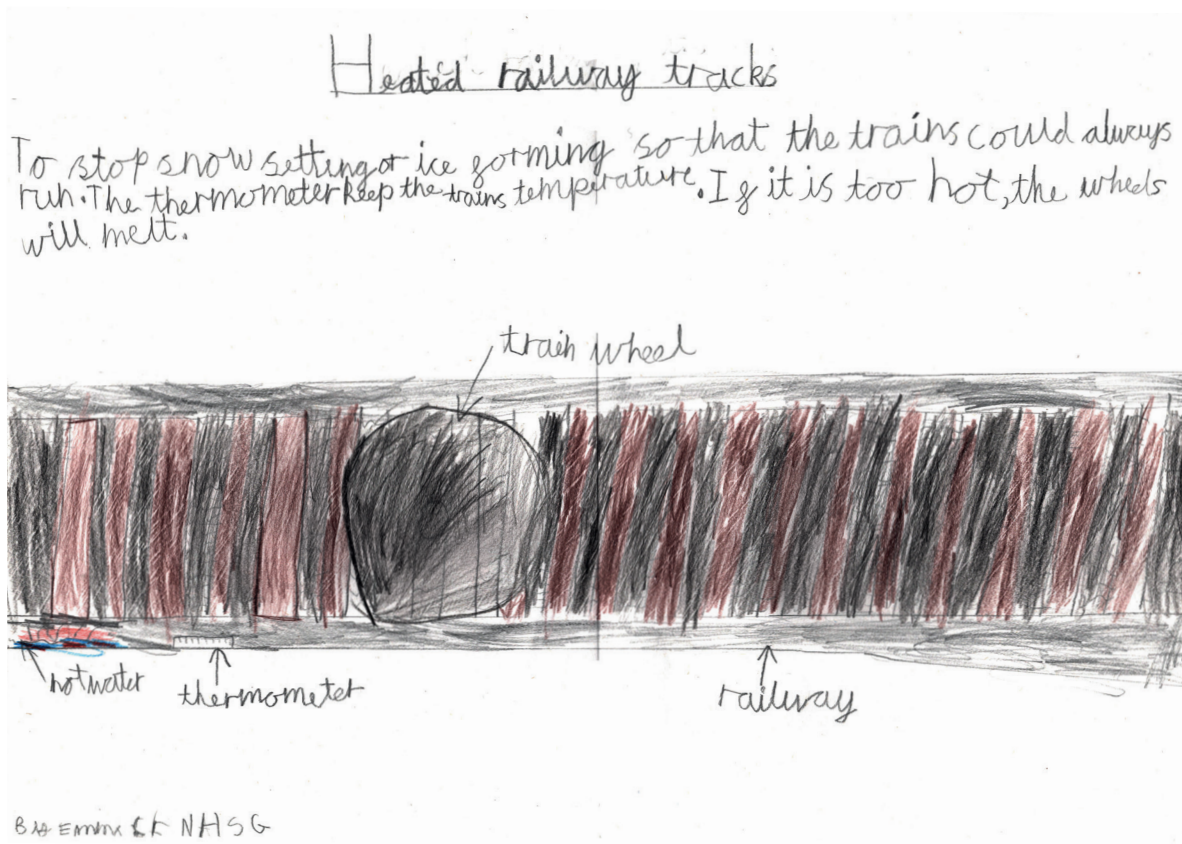 Heated railway tracks
To stop snow setting or ice forming so that the trains could always
run. The thermometer keep the trains temperature. If it is too hot, the wheels
will melt.
train wheel
hot water
thermometer
railway
By Emma LK NHSG